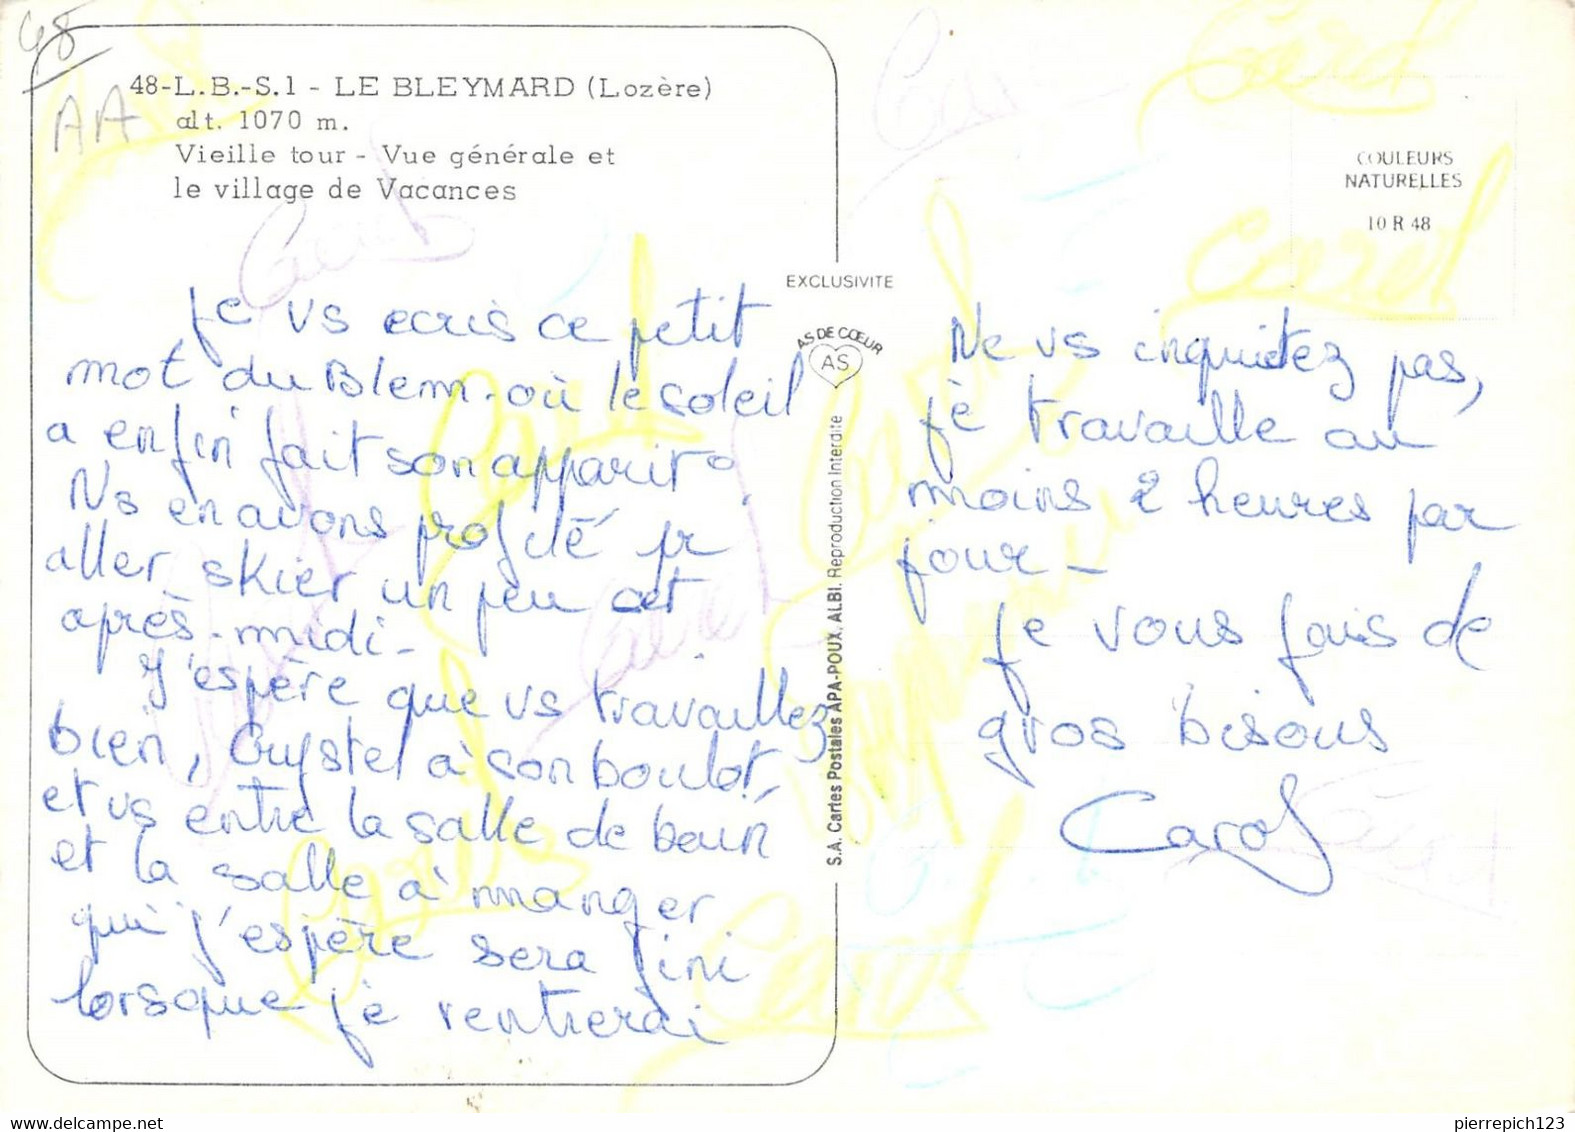 48
AA
48-L.B.-S.1 - LE BLEYMARD (Lozère)
alt. 1070 m.
Vieille tour - Vue générale et
le village de Vacances
COULEURS
NATURELLES
10 R 48
EXCLUSIVITE
AS DE CŒUR
AS
S.A. Cartes Postales APA-POUX. ALBI. Reproduction Interdite
Je vs ecris ce petit
mot du Blem. où le soleil
a enfin fait son apparit°
Ns en avons profité pr
aller skier un peu cet
après-midi_
J'espère que vs travaillez
bien, Crystel à son boulot,
et vs entre la salle de bain
et la salle à manger
qui j'espère sera fini
lorsque je rentrerai
Ne vs inquietez pas,
je travaille au
moins 2 heures par
jour_
Je vous fais de
gros bisous
Carol
Carol
Carol
Carol
Carol
Carol
pierrepich123